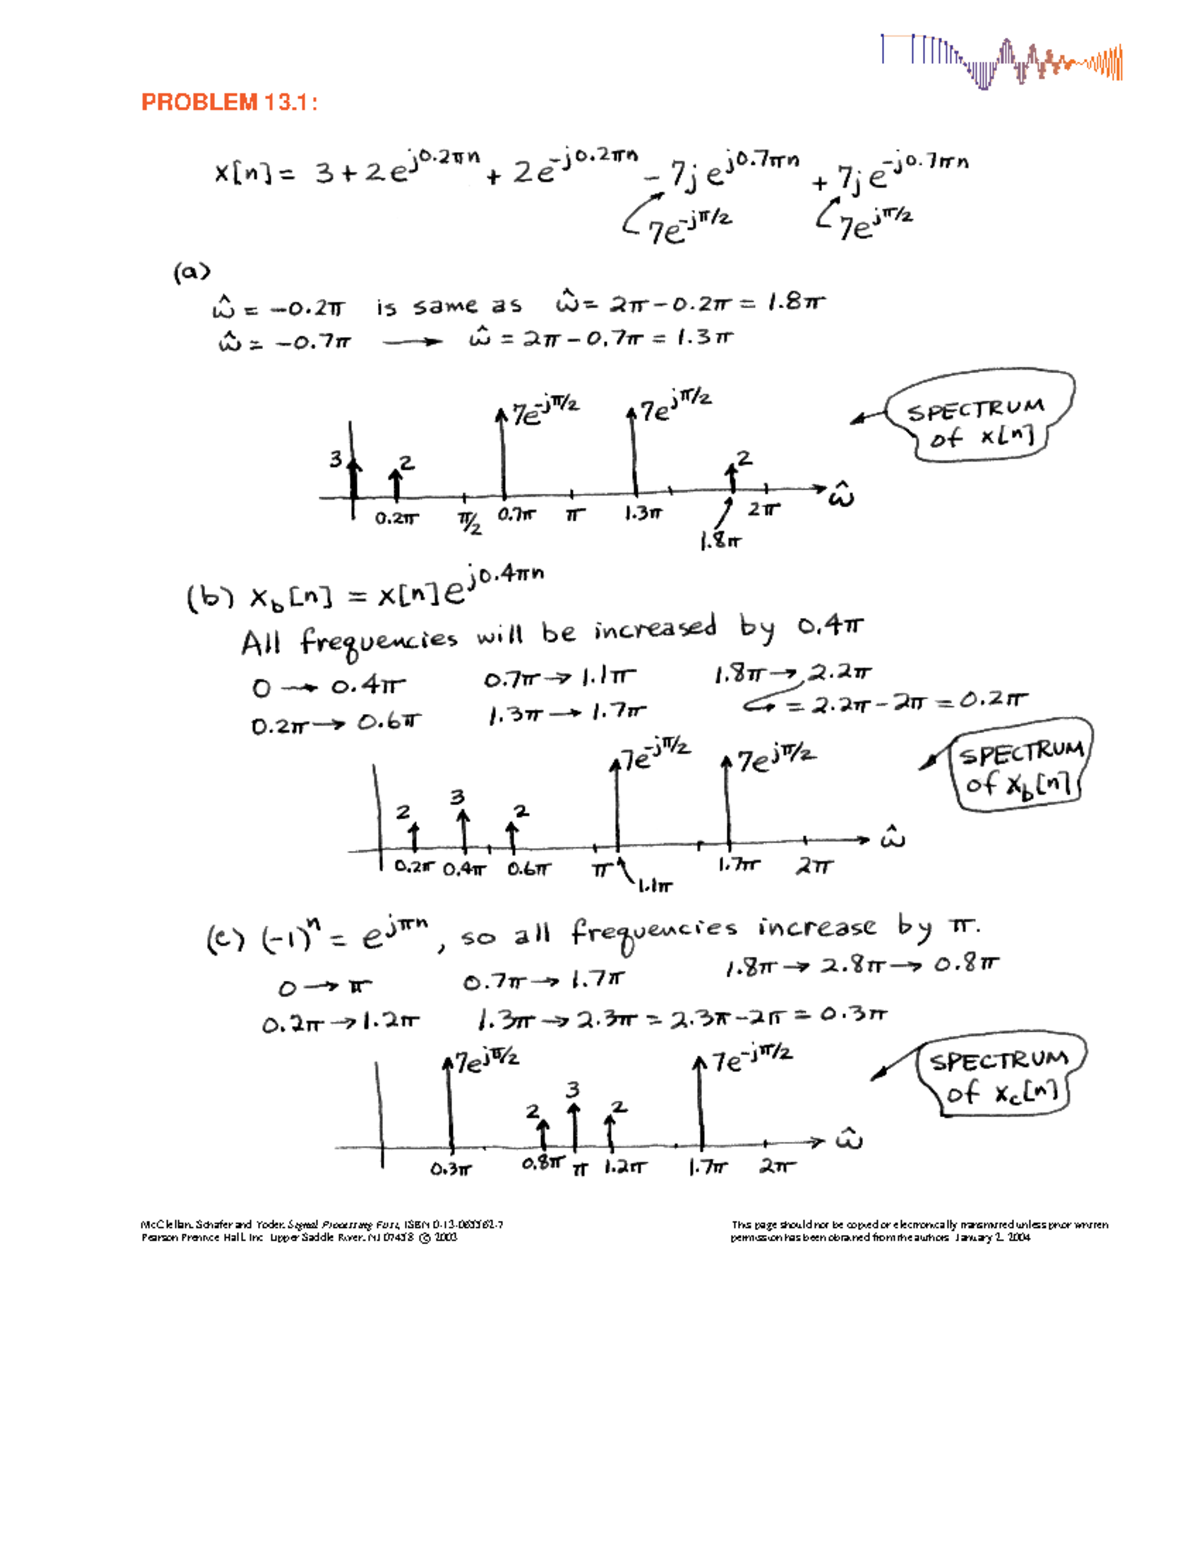 PROBLEM 13.1:
x[n] = 3 + 2e^{j0.2πn} + 2e^{-j0.2πn} - 7je^{j0.7πn} + 7je^{-j0.7πn}
7e^{-jπ/2} 7e^{jπ/2}
(a)
ω̂ = -0.2π is same as ω̂ = 2π - 0.2π = 1.8π
ω̂ = -0.7π → ω̂ = 2π - 0.7π = 1.3π
7e^{-jπ/2} 7e^{jπ/2}
SPECTRUM
of x[n]
3 2 2
ω̂
0.2π π/2 0.7π π 1.3π 2π
1.8π
(b) x_b[n] = x[n]e^{j0.4πn}
All frequencies will be increased by 0.4π
0 → 0.4π 0.7π → 1.1π 1.8π → 2.2π
0.2π → 0.6π 1.3π → 1.7π = 2.2π - 2π = 0.2π
7e^{-jπ/2} 7e^{jπ/2}
SPECTRUM
of x_b[n]
2 3 2
ω̂
0.2π 0.4π 0.6π π 1.7π 2π
1.1π
(c) (-1)^n = e^{jπn}, so all frequencies increase by π.
0 → π 0.7π → 1.7π 1.8π → 2.8π → 0.8π
0.2π → 1.2π 1.3π → 2.3π = 2.3π - 2π = 0.3π
7e^{jπ/2} 7e^{-jπ/2}
SPECTRUM
of x_c[n]
2 3 2
ω̂
0.3π 0.8π π 1.2π 1.7π 2π
McClellan, Schafer and Yoder, Signal Processing First, ISBN 0-13-065562-7
Pearson Prentice Hall, Inc. Upper Saddle River, NJ 07458. © 2003
This page should not be copied or electronically transmitted unless prior written
permission has been obtained from the authors. January 2, 2004